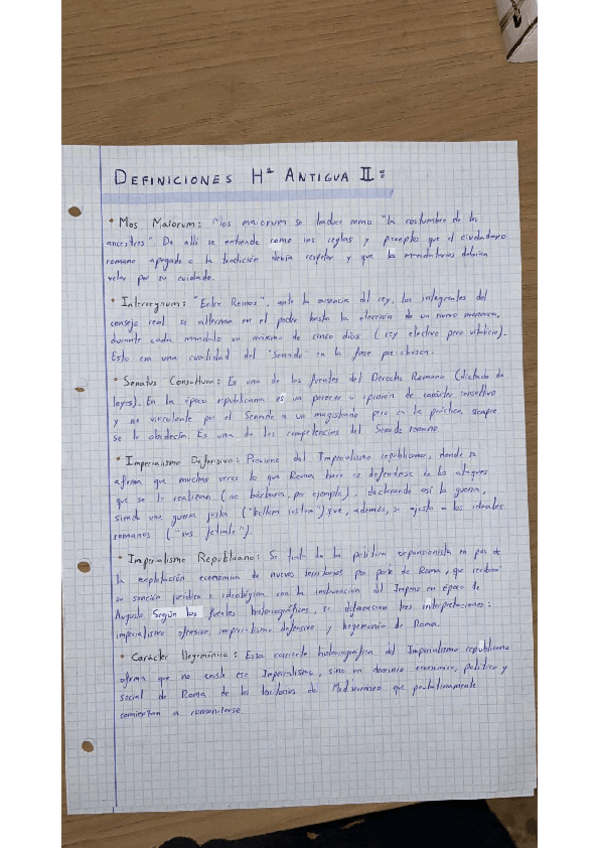 DEFINICIONES Hª ANTIGUA II:
* Mos Maiorum: Mos maiorum se traduce como "la costumbre de los
ancestros". De allí se entiende como las reglas y preceptos que el ciudadano
romano apegado a la tradición debía respetar y que los mandatarios debían
velar por su cuidado.
* Interregnum: "Entre Reinos", ante la ausencia del rey, los integrantes del
consejo real se alternan en el poder hasta la elección de un nuevo monarca,
durante cada mandato un máximo de cinco días (rey electivo pero vitalicio).
Esto era una cualidad del "Senado" en la fase
* Senatus Consultum: Es una de las fuentes del Derecho Romano (dictado de
leyes). En la época republicana es un parecer u opinión de carácter consultivo
y no vinculante por el Senado a un magistrado pero en la práctica siempre
se le obedecía. Es una de las competencias del Senado romano.
* Imperialismo Defensivo: Proviene del Imperialismo republicano, donde se
afirma que muchas veces lo que Roma hace es defenderse de los ataques
que se le realizan (de bárbaros, por ejemplo), declarando así la guerra,
siendo una guerra justa ("bellum iustum") que, además, se ajusta a los ideales
romanos ("ius fetiale").
* Imperialismo Republicano: Se trata de la política expansionista en pos de
la explotación económica de nuevos territorios por parte de Roma, que recibirá
su sanción jurídica e ideológica con la instauración del Imperio en época de
Augusto. Según las fuentes historiográficas, se diferencian tres interpretaciones:
imperialismo ofensivo, imperialismo defensivo y hegemonía de Roma.
* Carácter Hegemónico: Esta corriente historiográfica del Imperialismo republicano
afirma que no existe ese Imperialismo, sino un dominio económico, político y
social de Roma de los territorios del Mediterráneo que paulatinamente
comienzan a romanizarse.